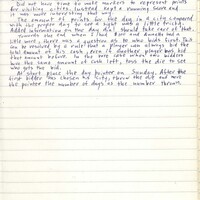 Did not have time to make markers to represent points
for visiting cities. Instead kept a running score and
it was more interesting that way.
The amount of points for the day in a city compared
with the proper day to see a sight was a little
Added information on the day dial should take care of that.
Towards the end when Dad, Ross and Annette had a
little more, there was a question as to who bids first. This
can be resolved by a rule that a player can always bid the
total amount of his cash, even if another player has bid
that amount before. In the rare case when any bidders
have the same amount of cash left, toss the die to see
who gets the bid.
At start place the day pointer on Sunday. After the
first bidder has chosen his city, throw the die and move
the pointer the number of days as the number thrown.